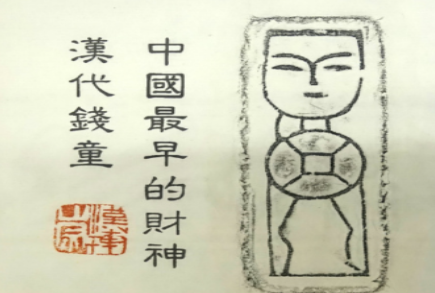 中國最早的財神
漢代錢童